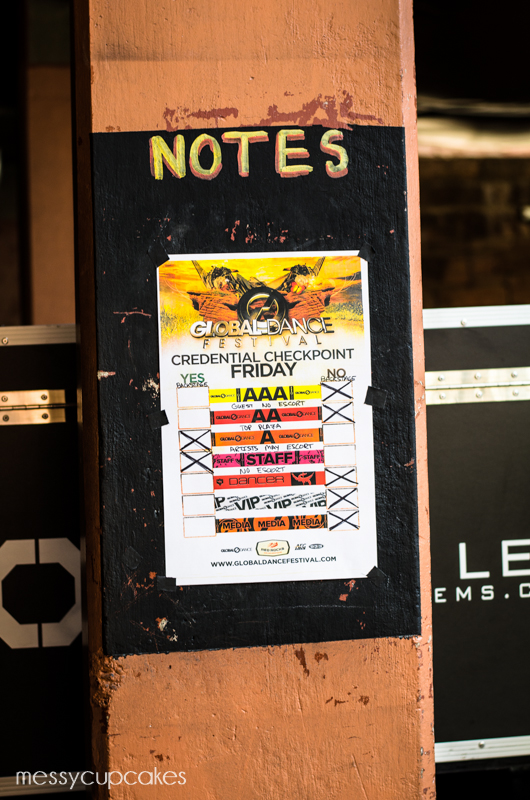 NOTES
GLOBAL DANCE
FESTIVAL
CREDENTIAL CHECKPOINT
YES FRIDAY NO
BACKSTAGE BACKSTAGE
AAA
GUEST NO ESCORT
GLOBAL DANCE AA GLOBAL DANCE
TOP PLAYA
GLOBAL DANCE A GLOBAL DANCE
ARTISTS MAY ESCORT
STAFF STAFF STAFF
NO ESCORT
DANCER
VIP VIP VIP
MEDIA MEDIA MEDIA
GLOBAL DANCE RED ROCKS AEG LIVE
WWW.GLOBALDANCEFESTIVAL.COM
LE
EMS.C
messycupcakes